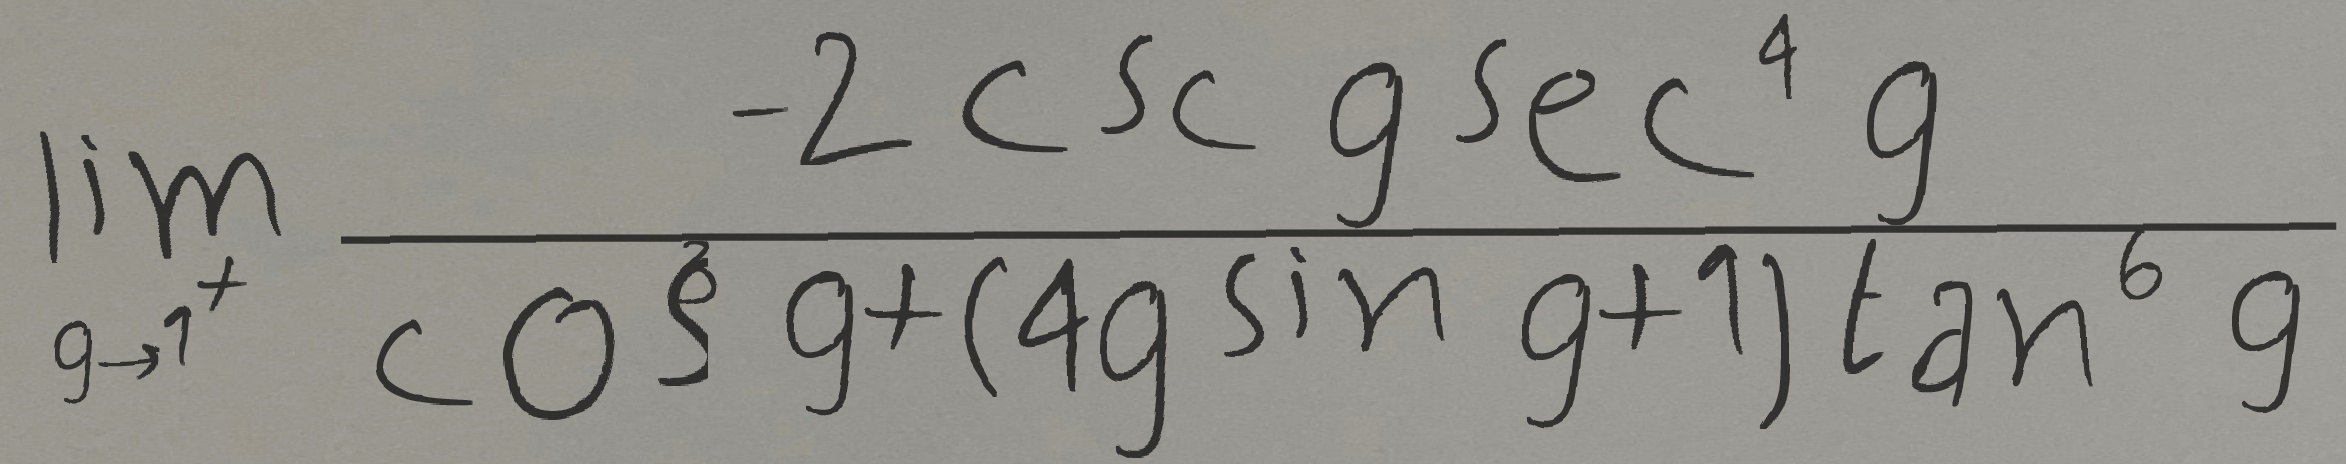 \lim_{g \to 1^{+}} \frac{-2 \csc g \sec^{4} g}{\cos^{2} g + (4g \sin g + 1) \tan^{6} g}